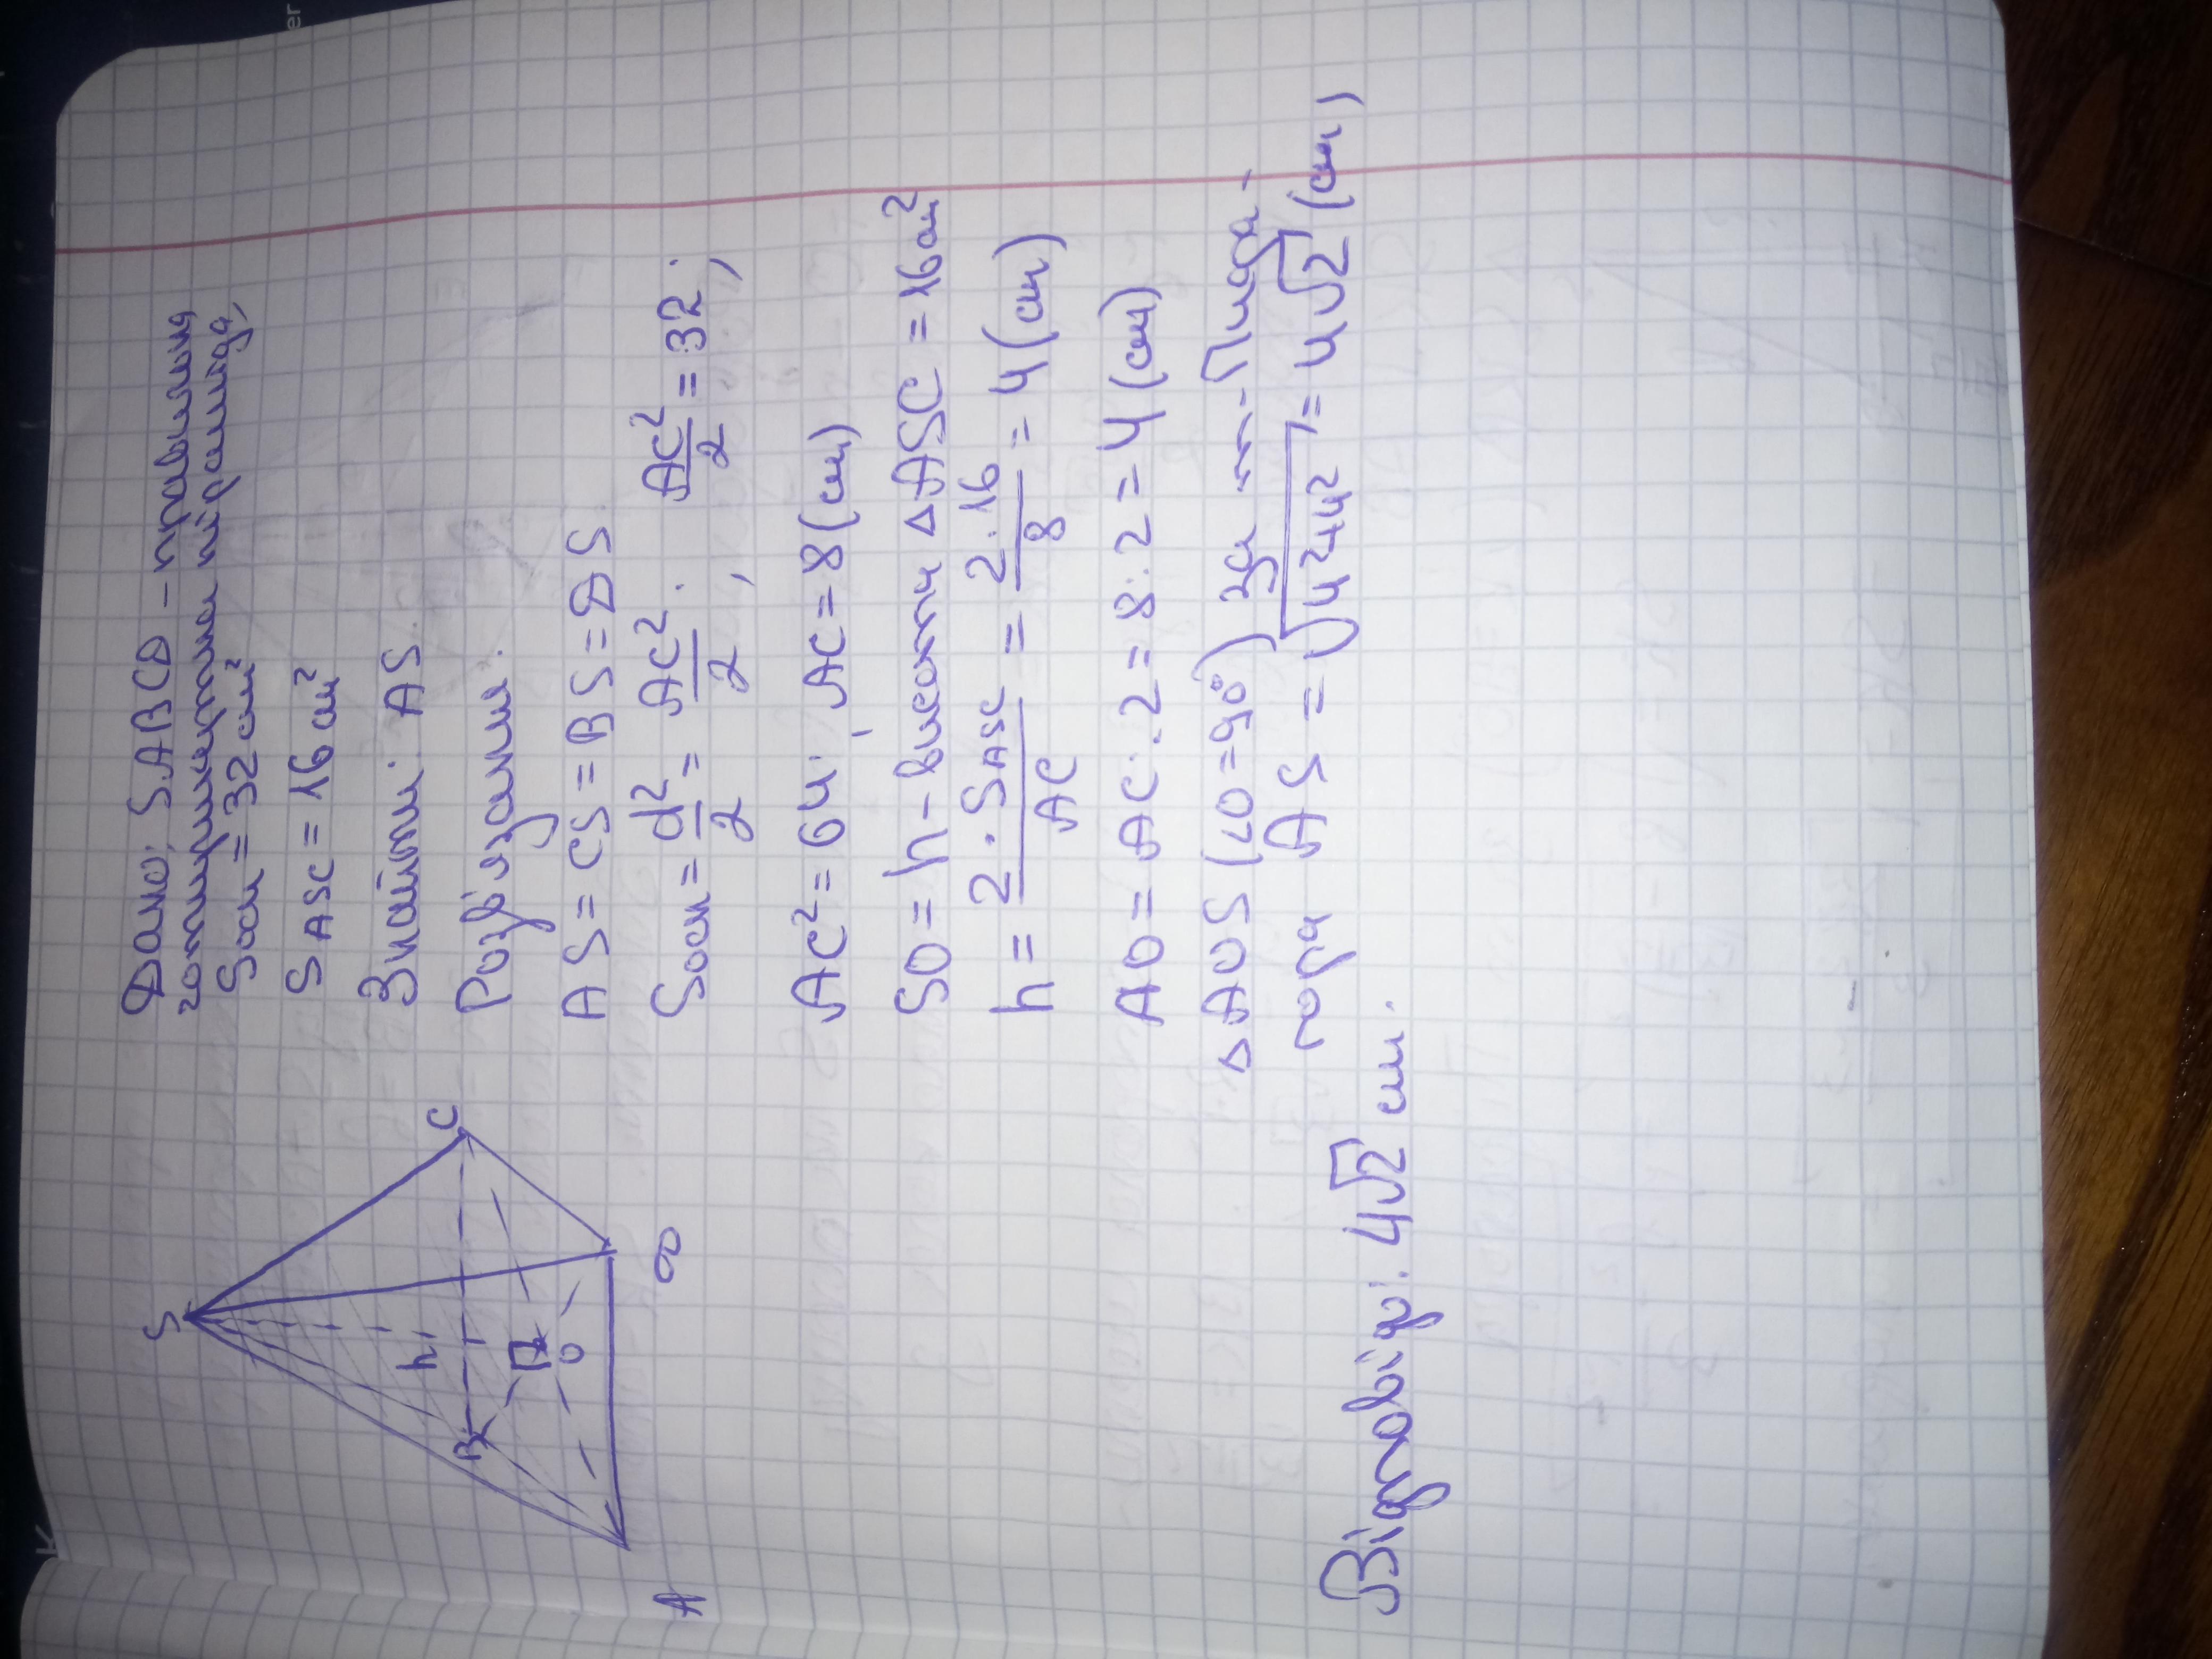 Дано: SABCD – правильна
чотирикутна піраміда,
Sосн = 32 см²
S ASC = 16 см²
Знайти: AS
Розв'язання:
AS = CS = BS = DS
Sосн = d²/2 = AC²/2 ; AC²/2 = 32 ;
AC² = 64 ; AC = 8 (см)
SO = h – висота △ASC = 16 см²
h = 2·S ASC/AC = 2·16/8 = 4 (см)
AO = AC : 2 = 8 : 2 = 4 (см)
△AOS (∠O = 90°) за т-Піфа-
гора AS = √4²+4² = 4√2 (см)
Відповідь: 4√2 см.
S
C
h
B
O
D
A